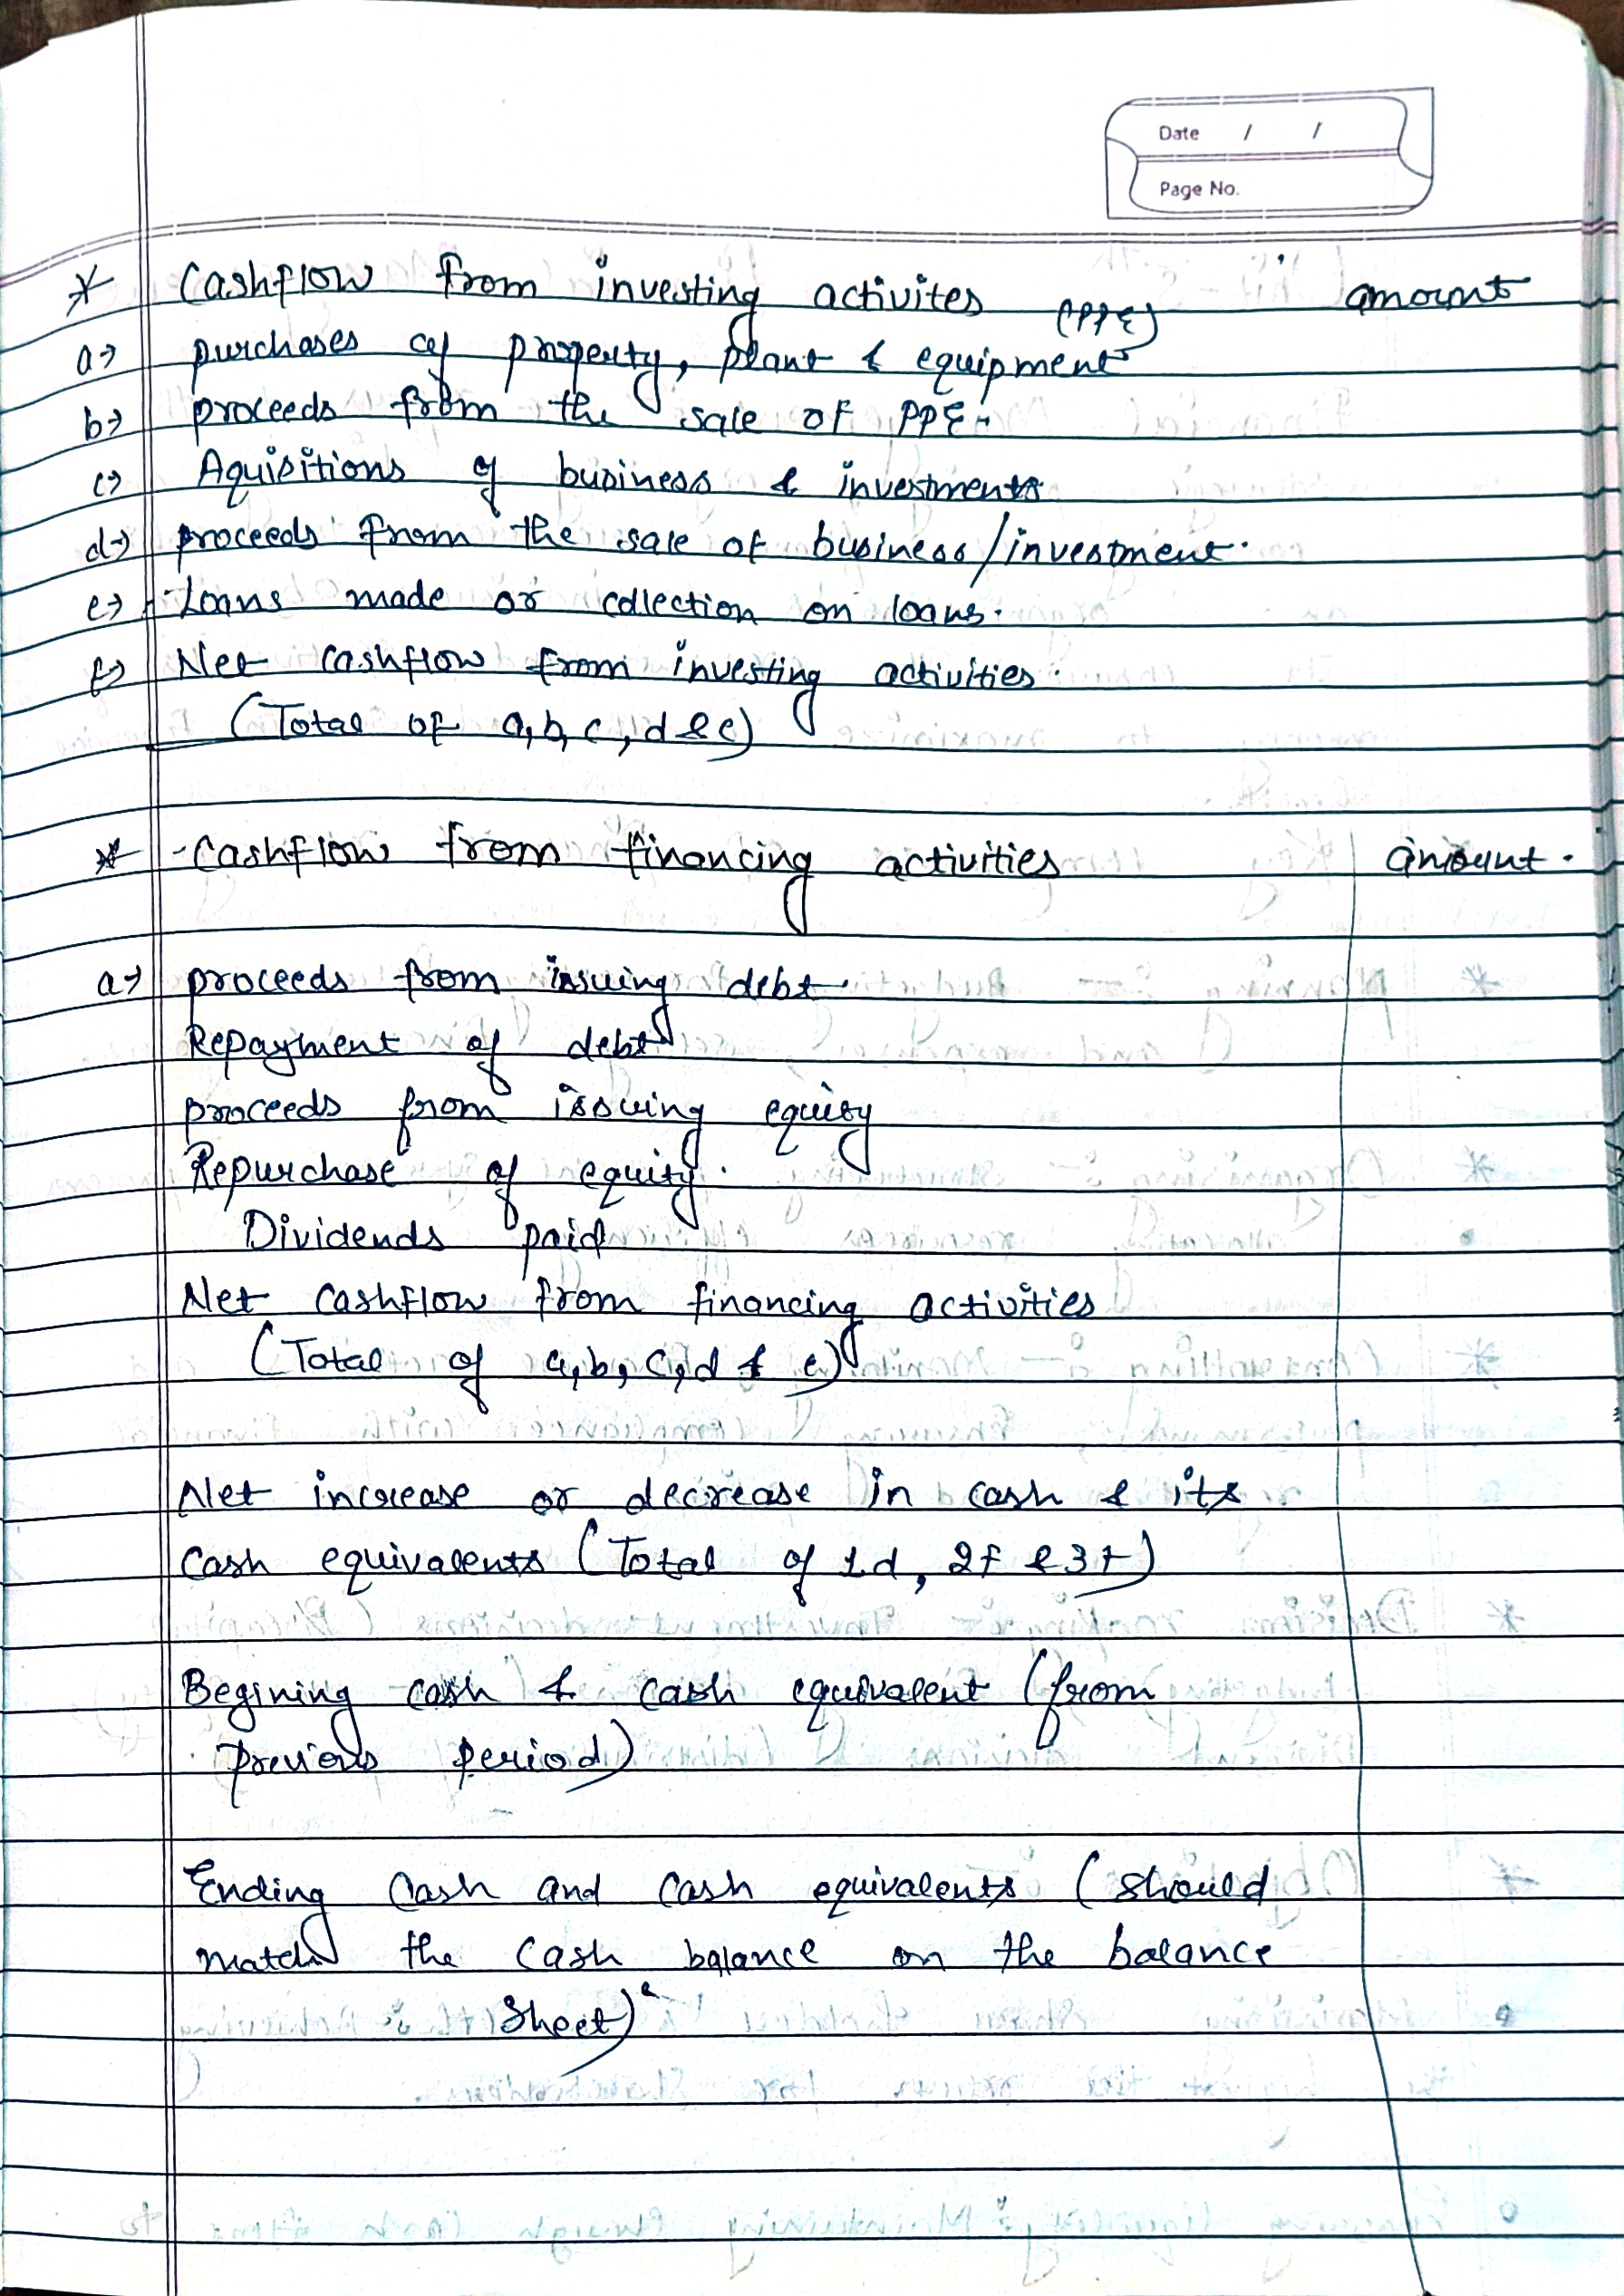 Date / /
Page No.
* Cashflow from investing activites amount
(PPE)
a→ purchases of property, plant & equipment
b→ proceeds from the sale of PPE.
c→ Aquisitions of business & investments
d→ proceeds from the sale of business/investment.
e→ Loans made or collection on loans.
f→ Net cashflow from investing activities.
(Total of a, b, c, d & e)
* Cashflow from financing activities amount.
a→ proceeds from issuing debt.
Repayment of debt
proceeds from issuing equity
Repurchase of equity.
Dividends paid
Net cashflow from financing activities
(Total of a, b, c, d & e)
Net increase or decrease in cash & its
cash equivalents (Total of 1d, 2f & 3f)
Begining cash & cash equivalent (from
previous period)
Ending cash and cash equivalents (should
match the cash balance on the balance
sheet).